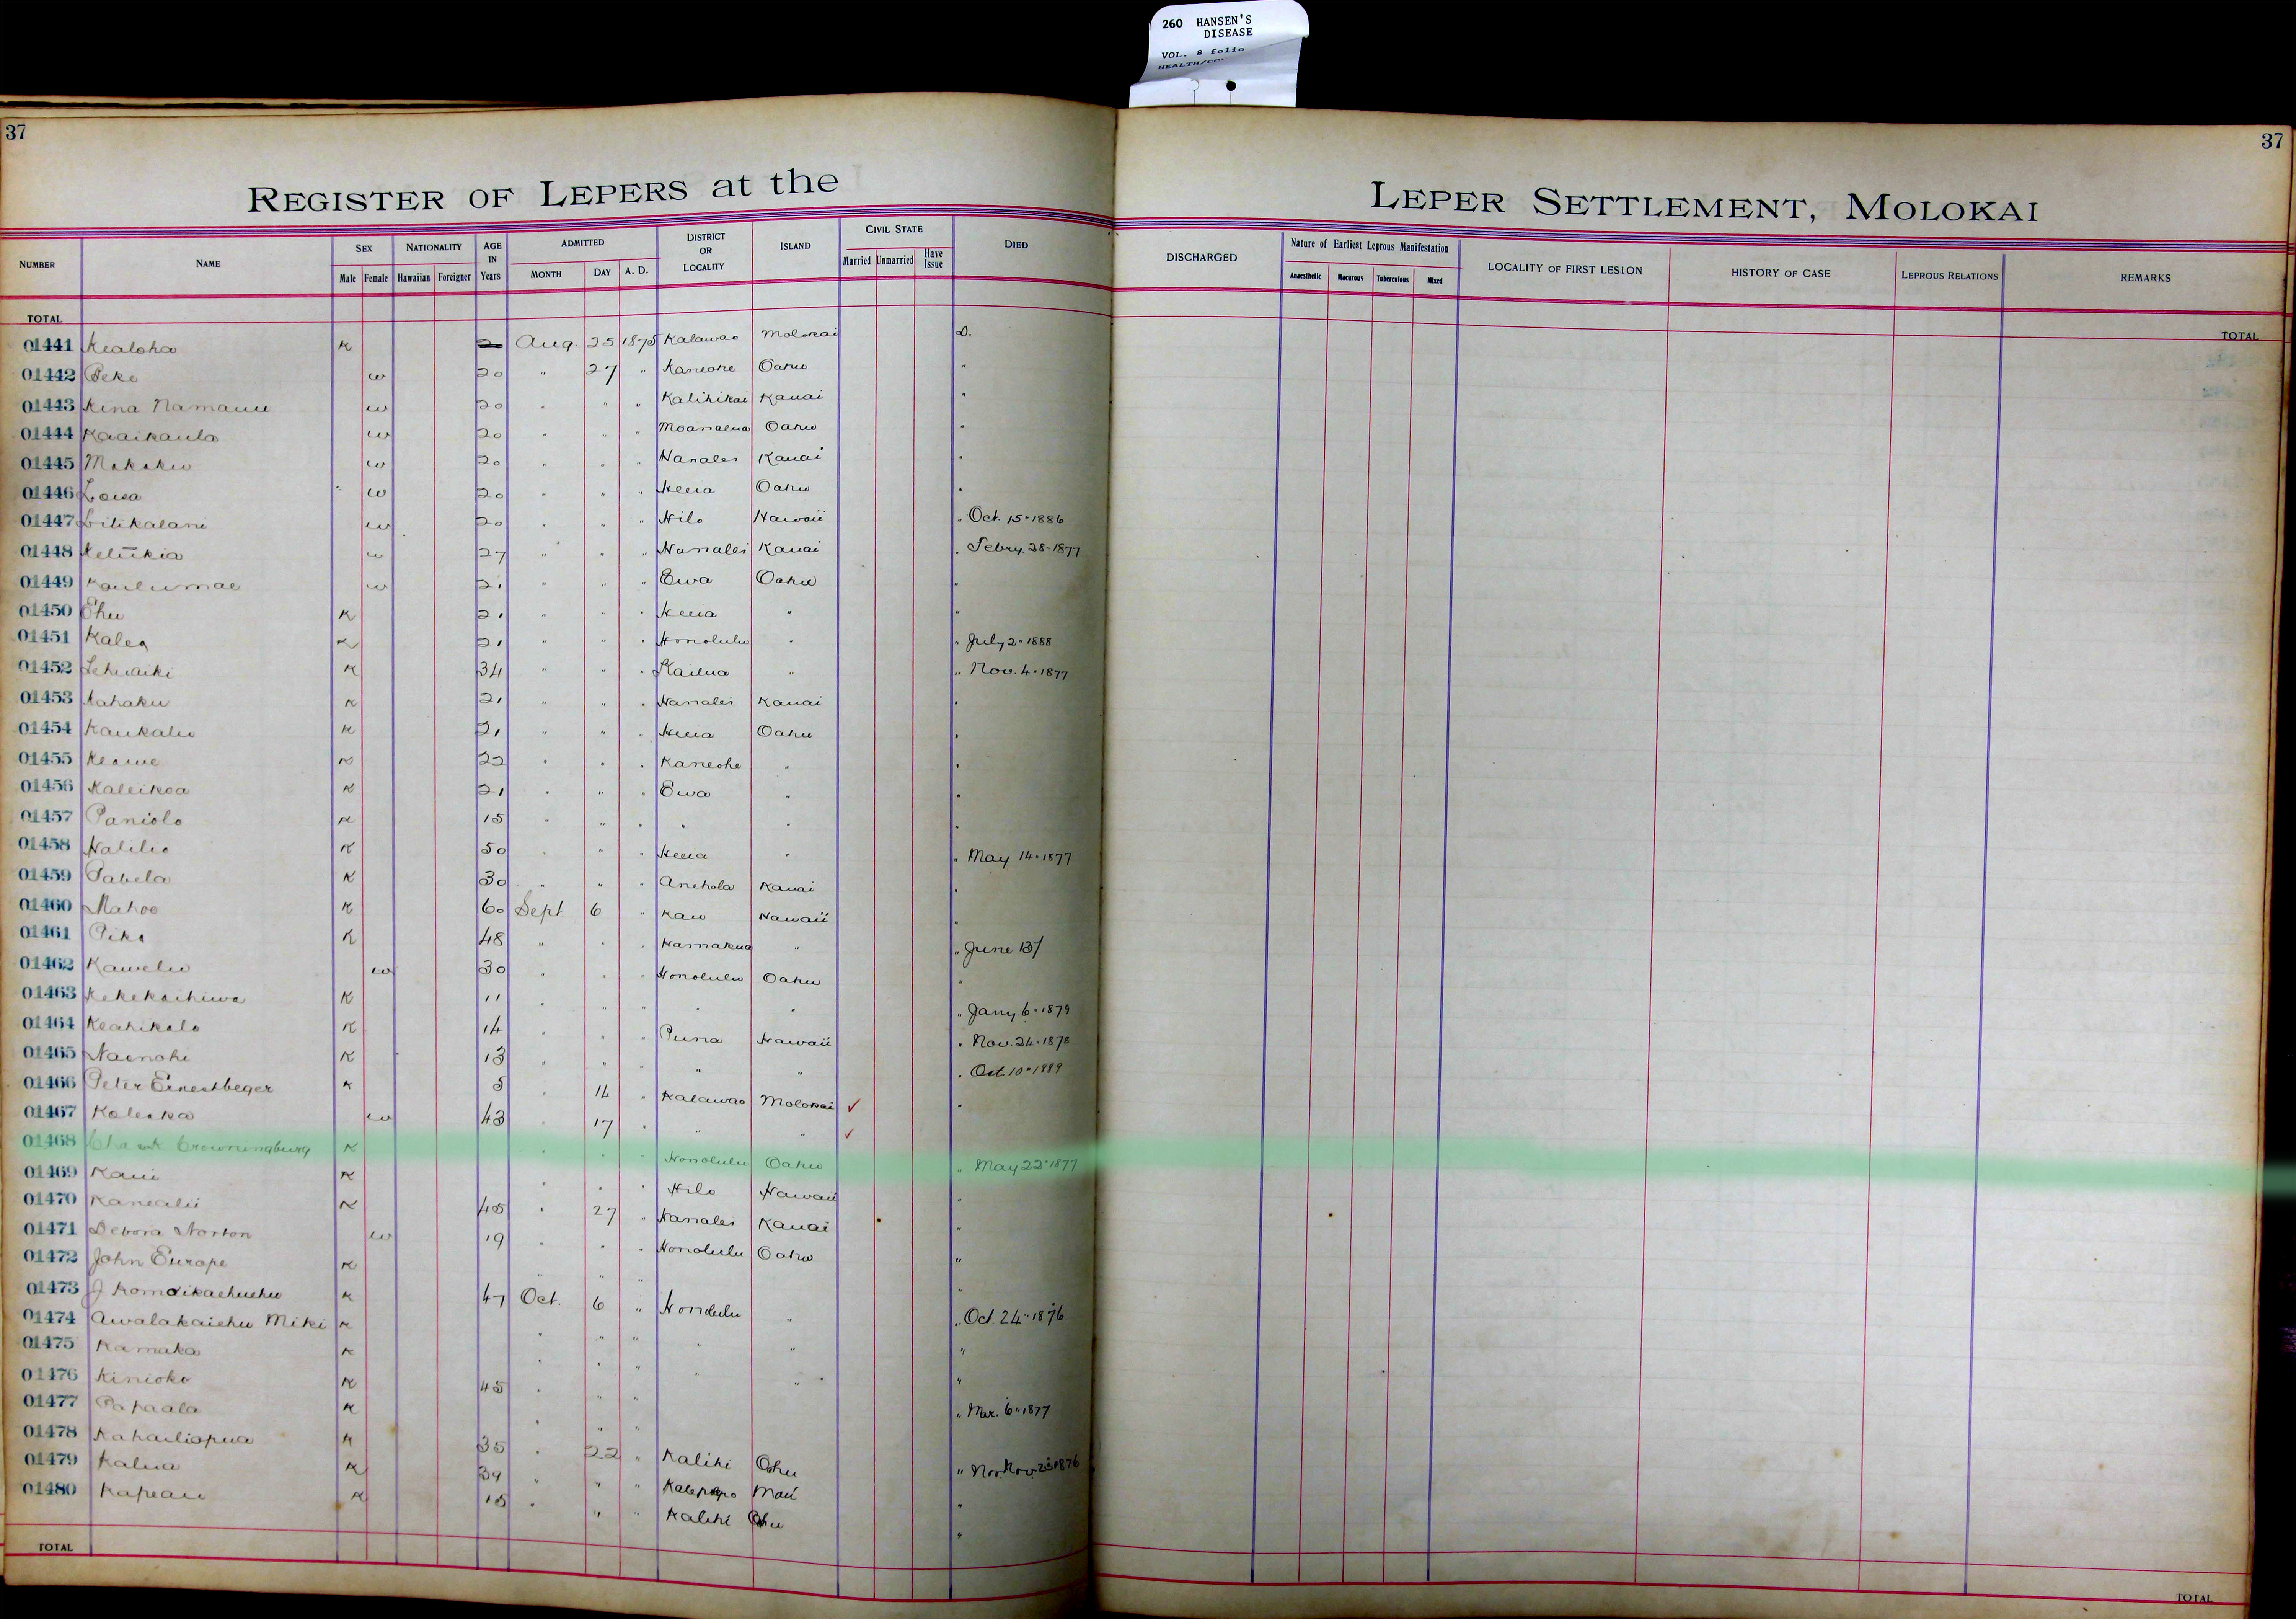 260 HANSEN'S
DISEASE
VOL. 8 folio
37
37
REGISTER OF LEPERS at the LEPER SETTLEMENT, MOLOKAI
NUMBER NAME SEX Male Female NATIONALITY Hawaiian Foreigner AGE IN Years ADMITTED MONTH DAY A. D. DISTRICT OR LOCALITY ISLAND CIVIL STATE Married Unmarried Have Issue DIED DISCHARGED Nature of Earliest Leprous Manifestation Anaesthetic Macurous Tuberculous Mixed LOCALITY OF FIRST LESION HISTORY OF CASE LEPROUS RELATIONS REMARKS
TOTAL TOTAL
01441 Kealoha K 20 Aug. 25 1875 Kalawao Molokai D.
01442 Peke w 20 " 27 " Kaneohe Oahu "
01443 Kina Namauu w 20 " " " Kalihikai Kauai "
01444 Kaaikaula w 20 " " " Moanalua Oahu "
01445 w 20 " " " Hanalei Kauai "
01446 Loisa w 20 " " " Heeia Oahu "
01447 Lilikalani w 20 " " " Hilo Hawaii " Oct. 15 - 1886
01448 Keliikia w 27 " " " Hanalei Kauai " Febry. 28 - 1877
01449 Kaulumae w 21 " " " Ewa Oahu "
01450 Ehu K 21 " " " Heeia " "
01451 Kalea K 21 " " " Honolulu " " July 2 - 1888
01452 Lehuaiki K 34 " " " Kailua " " Nov. 4 - 1877
01453 Kahaku K 21 " " " Hanalei Kauai "
01454 Kaukaliu K 21 " " " Heeia Oahu "
01455 Keawe K 22 " " " Kaneohe " "
01456 Kaleikoa K 21 " " " Ewa " "
01457 Paniolo K 15 " " " " " "
01458 Halilio K 50 " " " Heeia " " May 14 - 1877
01459 Pabela K 30 " " " Anehola Kauai "
01460 Mahoe K 60 Sept 6 " Kau Hawaii "
01461 Pika K 48 " " " Hamakua " " June 13/
01462 Kawelu w 30 " " " Honolulu Oahu "
01463 Kekekaihiwa K 11 " " " " " " Jany. 6 - 1879
01464 Keahikolo K 14 " " " Puna Hawaii " Nov. 24 - 1878
01465 Nainohi K 13 " " " " " " Oct 10 - 1889
01466 Peter Ernestbeger K 5 " 14 " Kalawao Molokai ✓ "
01467 Kaleika w 43 " 17 " " " ✓
01468 Crowningburg K " " " Honolulu Oahu " May 22 - 1877
01469 Kaui K " " " Hilo Hawaii "
01470 Kanealii K 45 " 27 " Hanalei Kauai "
01471 Debora Norton w 19 " " " Honolulu Oahu "
01472 John Europe K " " " "
01473 J Komoikaehuehu K 47 Oct. 6 " Honolulu " " Oct. 24 - 1876
01474 Awalakaiehu Miki K " " " " " "
01475 Kamaka K " " " " " "
01476 Kinioko K 45 " " " " Mar. 6 - 1877
01477 Papaala K " " "
01478 Kahailiopua K 35 " 22 " Kalihi Oahu " Nov. 23 1876
01479 Kalua K 34 " " " Kalepopo Maui "
01480 Kapeau K 15 " " " Kalihi Oahu "
TOTAL TOTAL